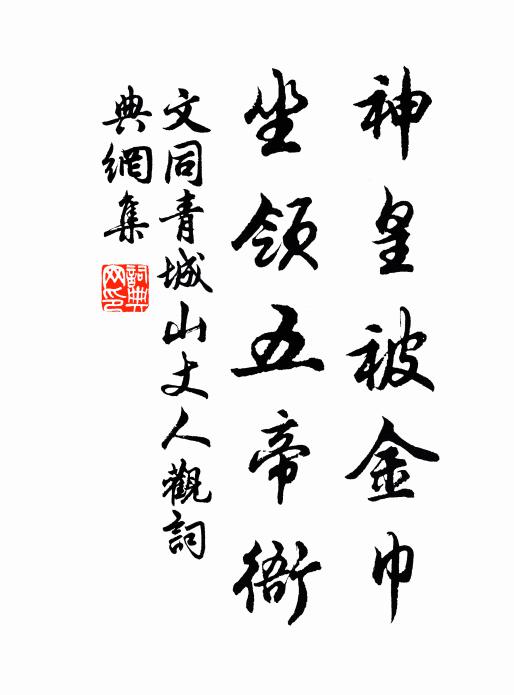 神皇被金巾
坐領五帝衙
文同青城山丈人觀詞
典網集
詞典
网印